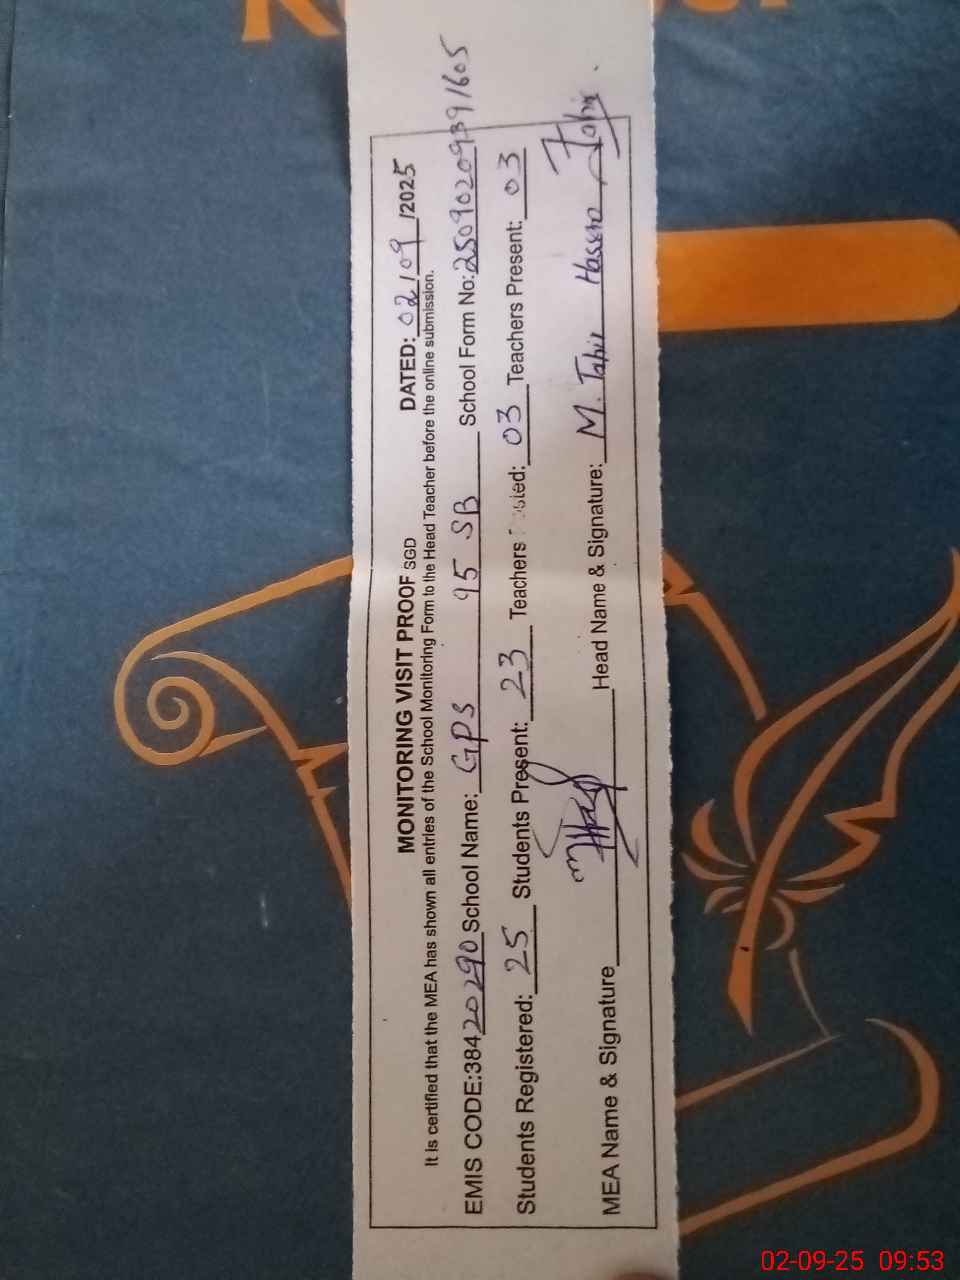 MONITORING VISIT PROOF SGD DATED: 02/09/2025
It is certified that the MEA has shown all entries of the School Monitoring Form to the Head Teacher before the online submission.
EMIS CODE:38420290 School Name: GPS 95 SB School Form No: 25090209391605
Students Registered: 25 Students Present: 23 Teachers Posted: 03 Teachers Present: 03
MEA Name & Signature Head Name & Signature: M. Tahir Hassan Tahir
02-09-25 09:53